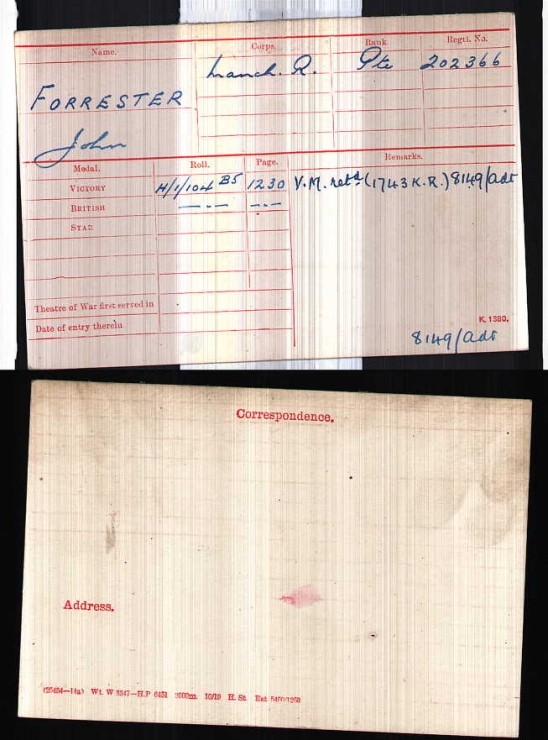 Name. Corps. Rank. Regtl. No.
Manch. R. Pte 202366
FORRESTER
John
Medal. Roll. Page. Remarks.
VICTORY H/1/104 B5 1230 V.M. retd. (1743 K.R.) 8149/Adt
BRITISH —"— —"—
STAR
Theatre of War first served in
Date of entry therein
K. 1380.
8149/Adt
Correspondence.
Address.
Wt. W 5347—H.P 10/19 H. St.